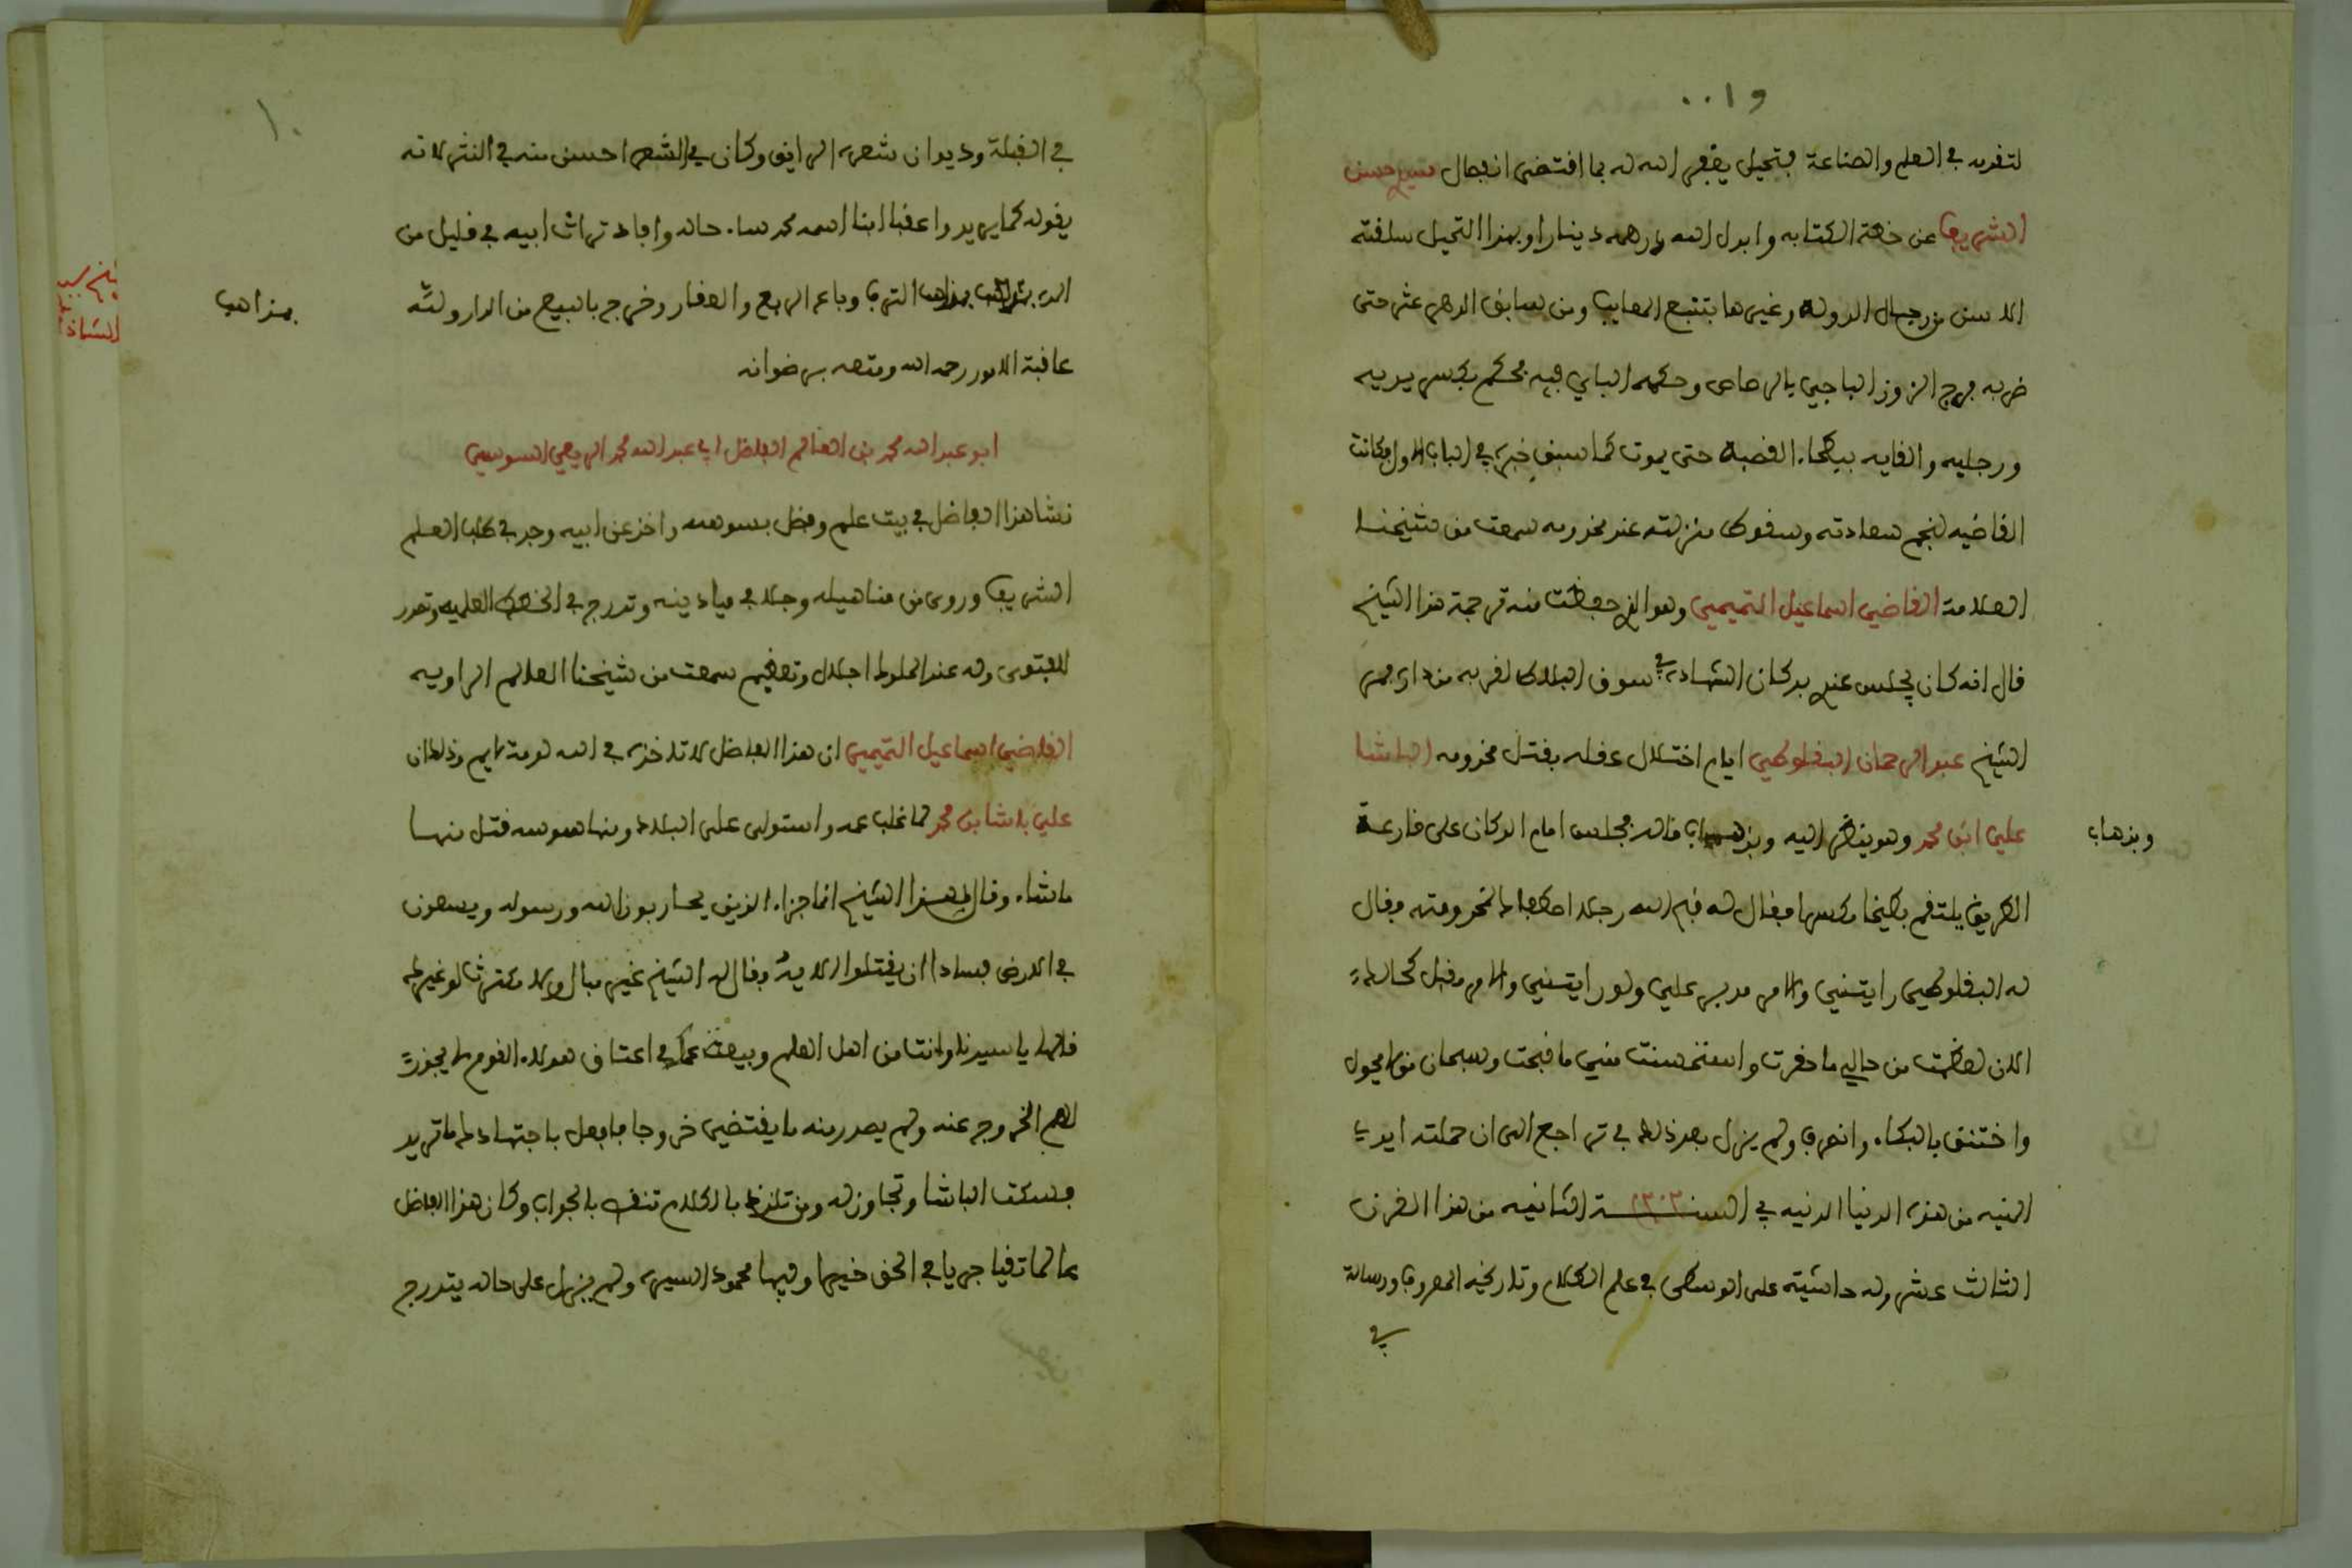 و١٠٠
لتفرده في العلم والصناعة فتحيل يغفر الله له بما اقتضى انفصال شيخ حسن
الشريف عن خطة الكتابه وابدل الله درهمه دينارا وبهذا التحيل سلقته
الالسن من رجال الدوله وغيرها بتتبع المعايب ومن سابق الدهر عثر حتى
ضربه فرج الزوز الباجي بالرصاص وحكمه الباي فيه فحكم بكسر يديه
ورجليه والقايه ببطحاء القصبة حتى يموت كما سبق خبره في الباب الاول وكانت
القاضيه لنجم سعادته وسقوط منزلته عند مخدومه سمعت من شيخنا
العلامة القاضي اسماعيل التميمي وهو الذي حفظت منه ترجمة هذا الشيخ
قال انه كان يجلس عندي بدكان الشهادة في سوق البلاط لقربه من داري فمر
الشيخ عبد الرحمان البقلوطي ايام اختلال عقله بقتل مخدومه الباشا
علي ابن محمد وهو ينظر اليه وبذهاب ماله فجلس امام الدكان على قارعة
وبذهاب
الطريق يلتقم بطيخا مكسرا فقال له قبح الله رجلا اصطفاك لخدومته فقال
له البقلوطي رايتني والامر مدبر علي ولو رايتني والامر مقبل كحالك
الان لعظمت من حالي ما حقرت واستحسنت مني ما قبحت وسبحان من لا يحول
واختنق بالبكاء وانصرف ولم يزل بعد ذلك في تراجع الى ان حملته ايدي
المنيه من هذه الدنيا الدنيه في السنة الثانيه من هذا القرن
١٢٠٢
الثالث عشر وله حاشيته على الوسطى في علم الكلام وتاريخه المعروف ورسالة
في
١٠
في القبلة وديوان شعره الرايق وكان في الشعر احسن منه في النثر لانه
يقوله كما يريد واعقب ابنا اسمه محمد ساء حاله وافاد تراث ابيه في قليل من
بمذاهب الترف وباع الربع والعقار وخرج بالبيع من الدار ولله
بمذاهب
عاقبة الامور رحمه الله ومتعه برضوانه
ابو عبد الله محمد بن العالم الفاضل ابي عبد الله محمد الريعي السوسي
نشا هذا الفاضل في بيت علم وفضل بسوسه واخذ عن ابيه وجد في طلب العلم
الشريف وروى من مناهيله وجلا في ميادينه وتدرج في الخطط العلميه وتصدر
للفتوى وله عند الملوك اجلال وتعظيم سمعت من شيخنا العالم الراويه
القاضي اسماعيل التميمي ان هذا الفاضل لا تاخذه في الله لومة لايم وذلك ان
علي باشا بن محمد لما غلب عمه واستولى على البلاد ومنها سوسه قتل منها
ماشاء وقال لهذا الشيخ انما جزاء الذين يحاربون الله ورسوله ويسعون
في الارض فسادا ان يقتلوا الاية فقال له الشيخ غير مبال ولا مكترث لو غيرك
قالها يا سيدنا وانت من اهل العلم وبيعة عمك في اعناق هولاء القوم لا يجوز
لهم الخروج عنه ولم يصدر منه ما يقتضي خروجا فافعل باجتهادك ما تريد
فسكت الباشا وتجاوز له ومن تلذذ بالكلام تنغص بالجواب وكان هذا الفاضل
عالما تقيا جريا في الحق خيرا وفيها محمود السيره ولم يزل على حاله يتدرج